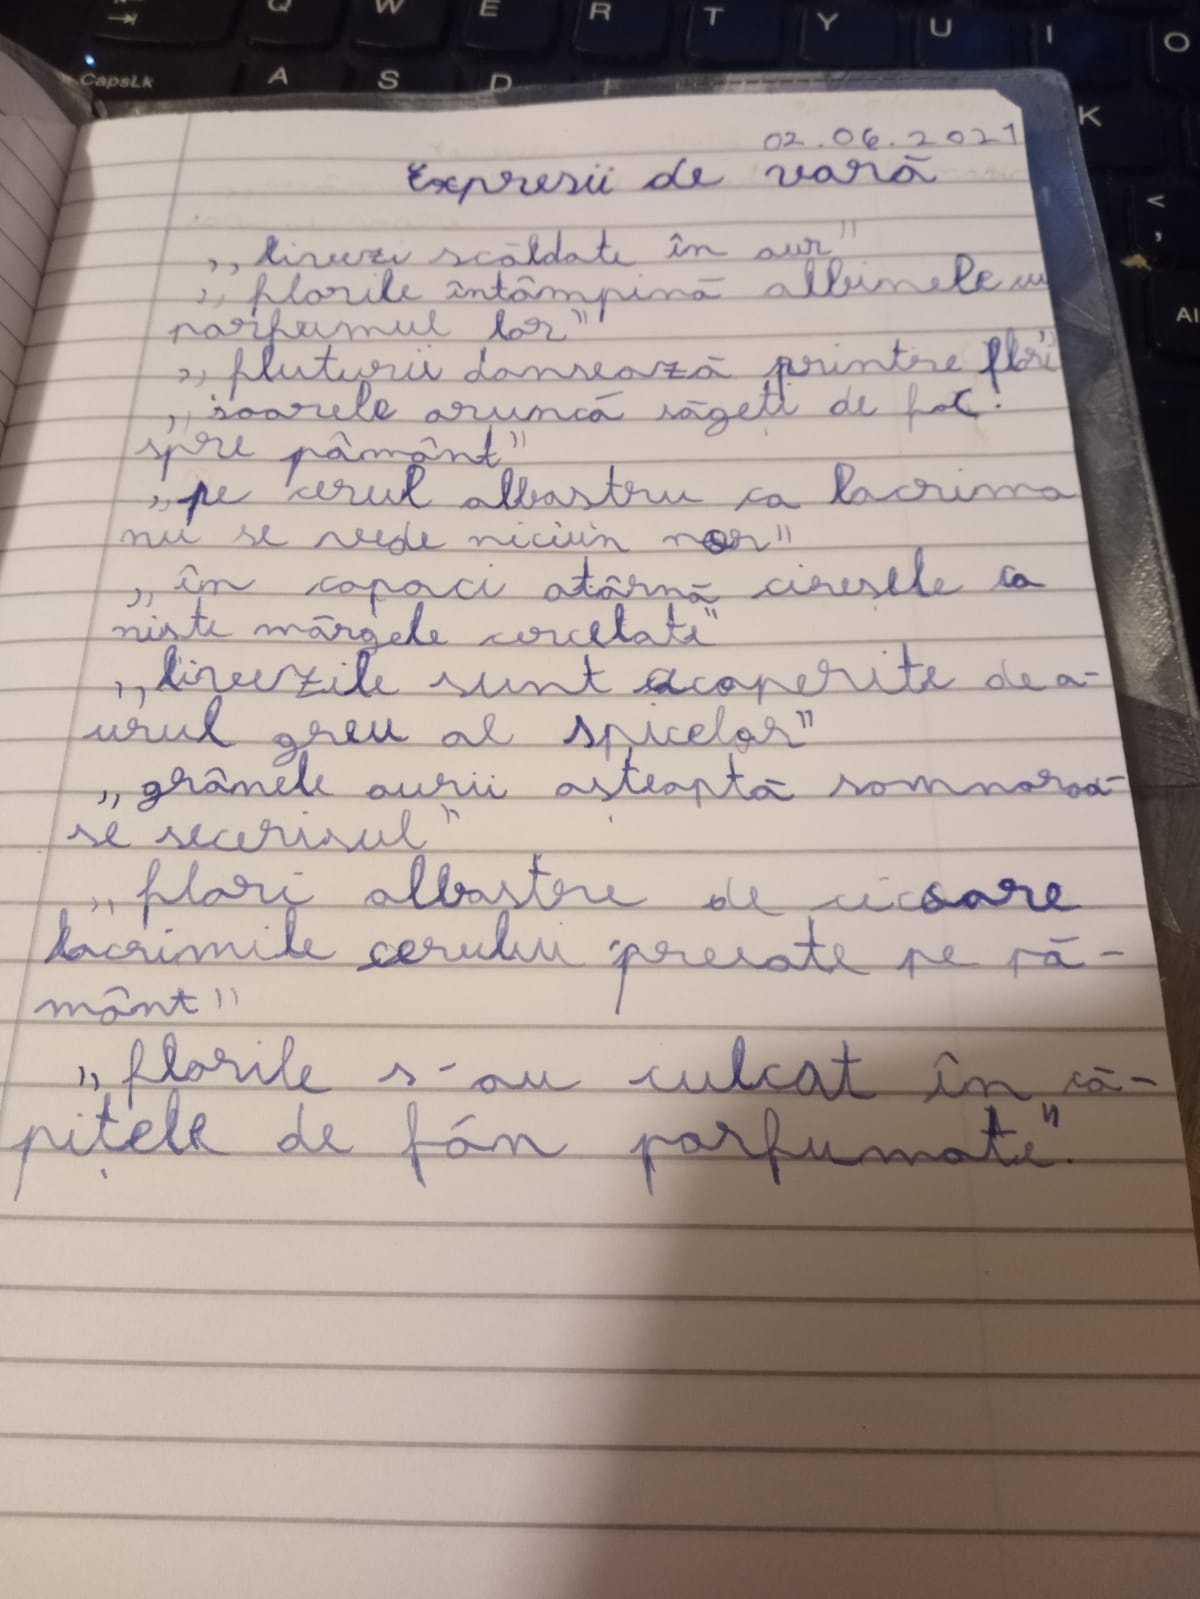 Q W E R T Y U I O
CapsLk A S D K
<
,
Al
02.06.2021
Expresii de vară
,,livezi scăldate în aur"
,,florile întâmpină albinele cu
parfumul lor"
,,fluturii dansează printre flori"
,,soarele aruncă săgeți de foc
spre pământ"
,,pe cerul albastru ca lacrima
nu se vede niciun nor"
,,în copaci atârnă cireșele ca
niste mărgele cercelate"
,,livezile sunt acoperite de a-
urul greu al spicelor"
,,grânele aurii așteaptă somnoroa-
se secerisul"
,,flori albastre de cicoare
lacrimile cerului presate pe pă-
mânt"
,,florile s-au culcat în că-
pițele de fân parfumate".